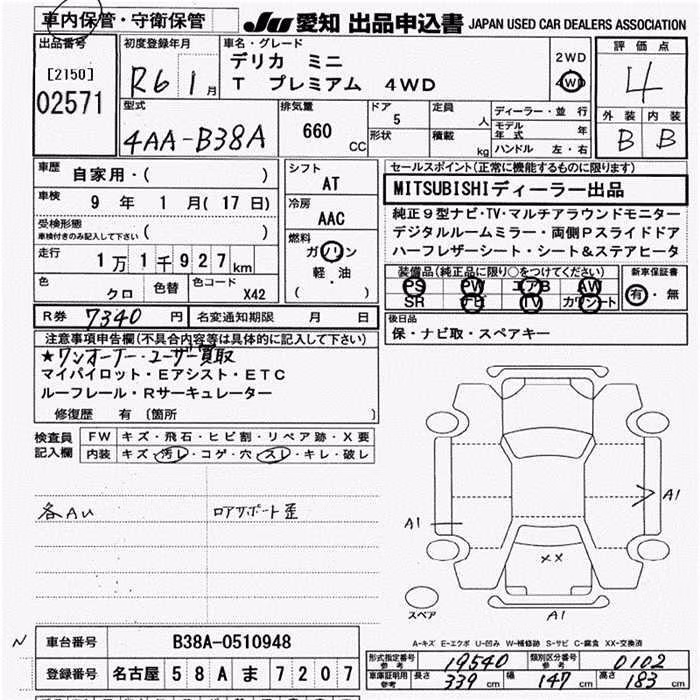 車内保管・守衛保管
JU 愛知 出品申込書 JAPAN USED CAR DEALERS ASSOCIATION
出品番号
[2150]
02571
初度登録年月
R6 1月
車名・グレード
デリカ ミニ
T プレミアム 4WD
2WD
4WD
評価点
4
外装 内装
B B
型式
4AA-B38A
排気量
660 CC
ドア 5
形状
定員 人
積載 kg
ディーラー・並 行
モデル年式 年
ハンドル 左・右
車歴 自家用・( )
車検 9年 1月(17日)
受検形態
車検付きのみ記入して下さい ( )
走行 1万1千927km
色 クロ
色替
色コード X42
シフト
AT
冷房
AAC
燃料
ガソリン
軽・油
( )
セールスポイント(正常に機能するものに限ります)
MITSUBISHIディーラー出品
純正9型ナビ・TV・マルチアラウンドモニター
デジタルルームミラー・両側Pスライドドア
ハーフレザーシート・シート&ステアヒータ
装備品(純正品に限り○をつけてください)
PS PW エアB AW
SR ナビ TV カワシート
新車保証書
有・無
R券 7340円
名変通知期限 月 日
後日品
保・ナビ取・スペアキー
注意事項申告欄(不具合内容等は具体的に記入して下さい)
★ワンオーナー・ユーザー買取
マイパイロット・Eアシスト・ETC
ルーフレール・Rサーキュレーター
修復歴 有 〔箇所 〕
検査員記入欄
FW キズ・飛石・ヒビ割・リペア跡・X要
内装 キズ・汚レ・コゲ・穴・スレ・キレ・破レ
各AU
ロアサポート歪
A1
A1
XX
スペア
A1
A-キズ E-エクボ U-凹み W-補修跡 S-サビ C-腐食 XX-交換済
N
車台番号 B38A-0510948
登録番号 名古屋 58A ま 7207
形式指定番号 参考 19540
類別区分番号 参考 0102
車庫証明用 参考 長さ 339cm 幅 147cm 高さ 183cm